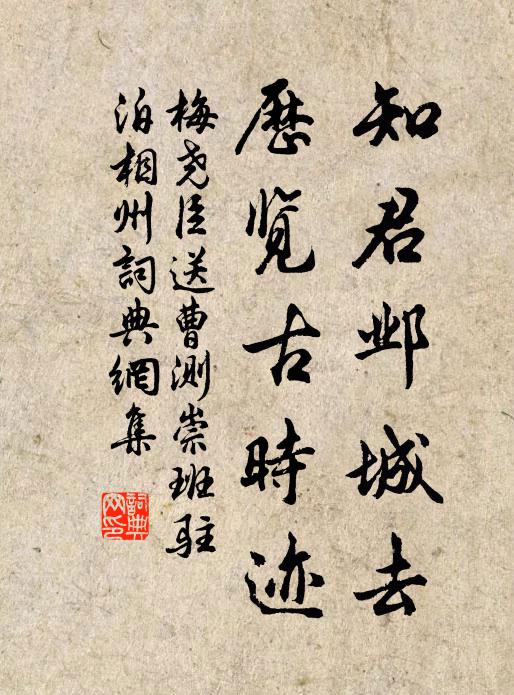 知君邺城去
歷览古時迹
梅尧臣送曹测崇班駐
泊相州詞典網集
詞典
网印